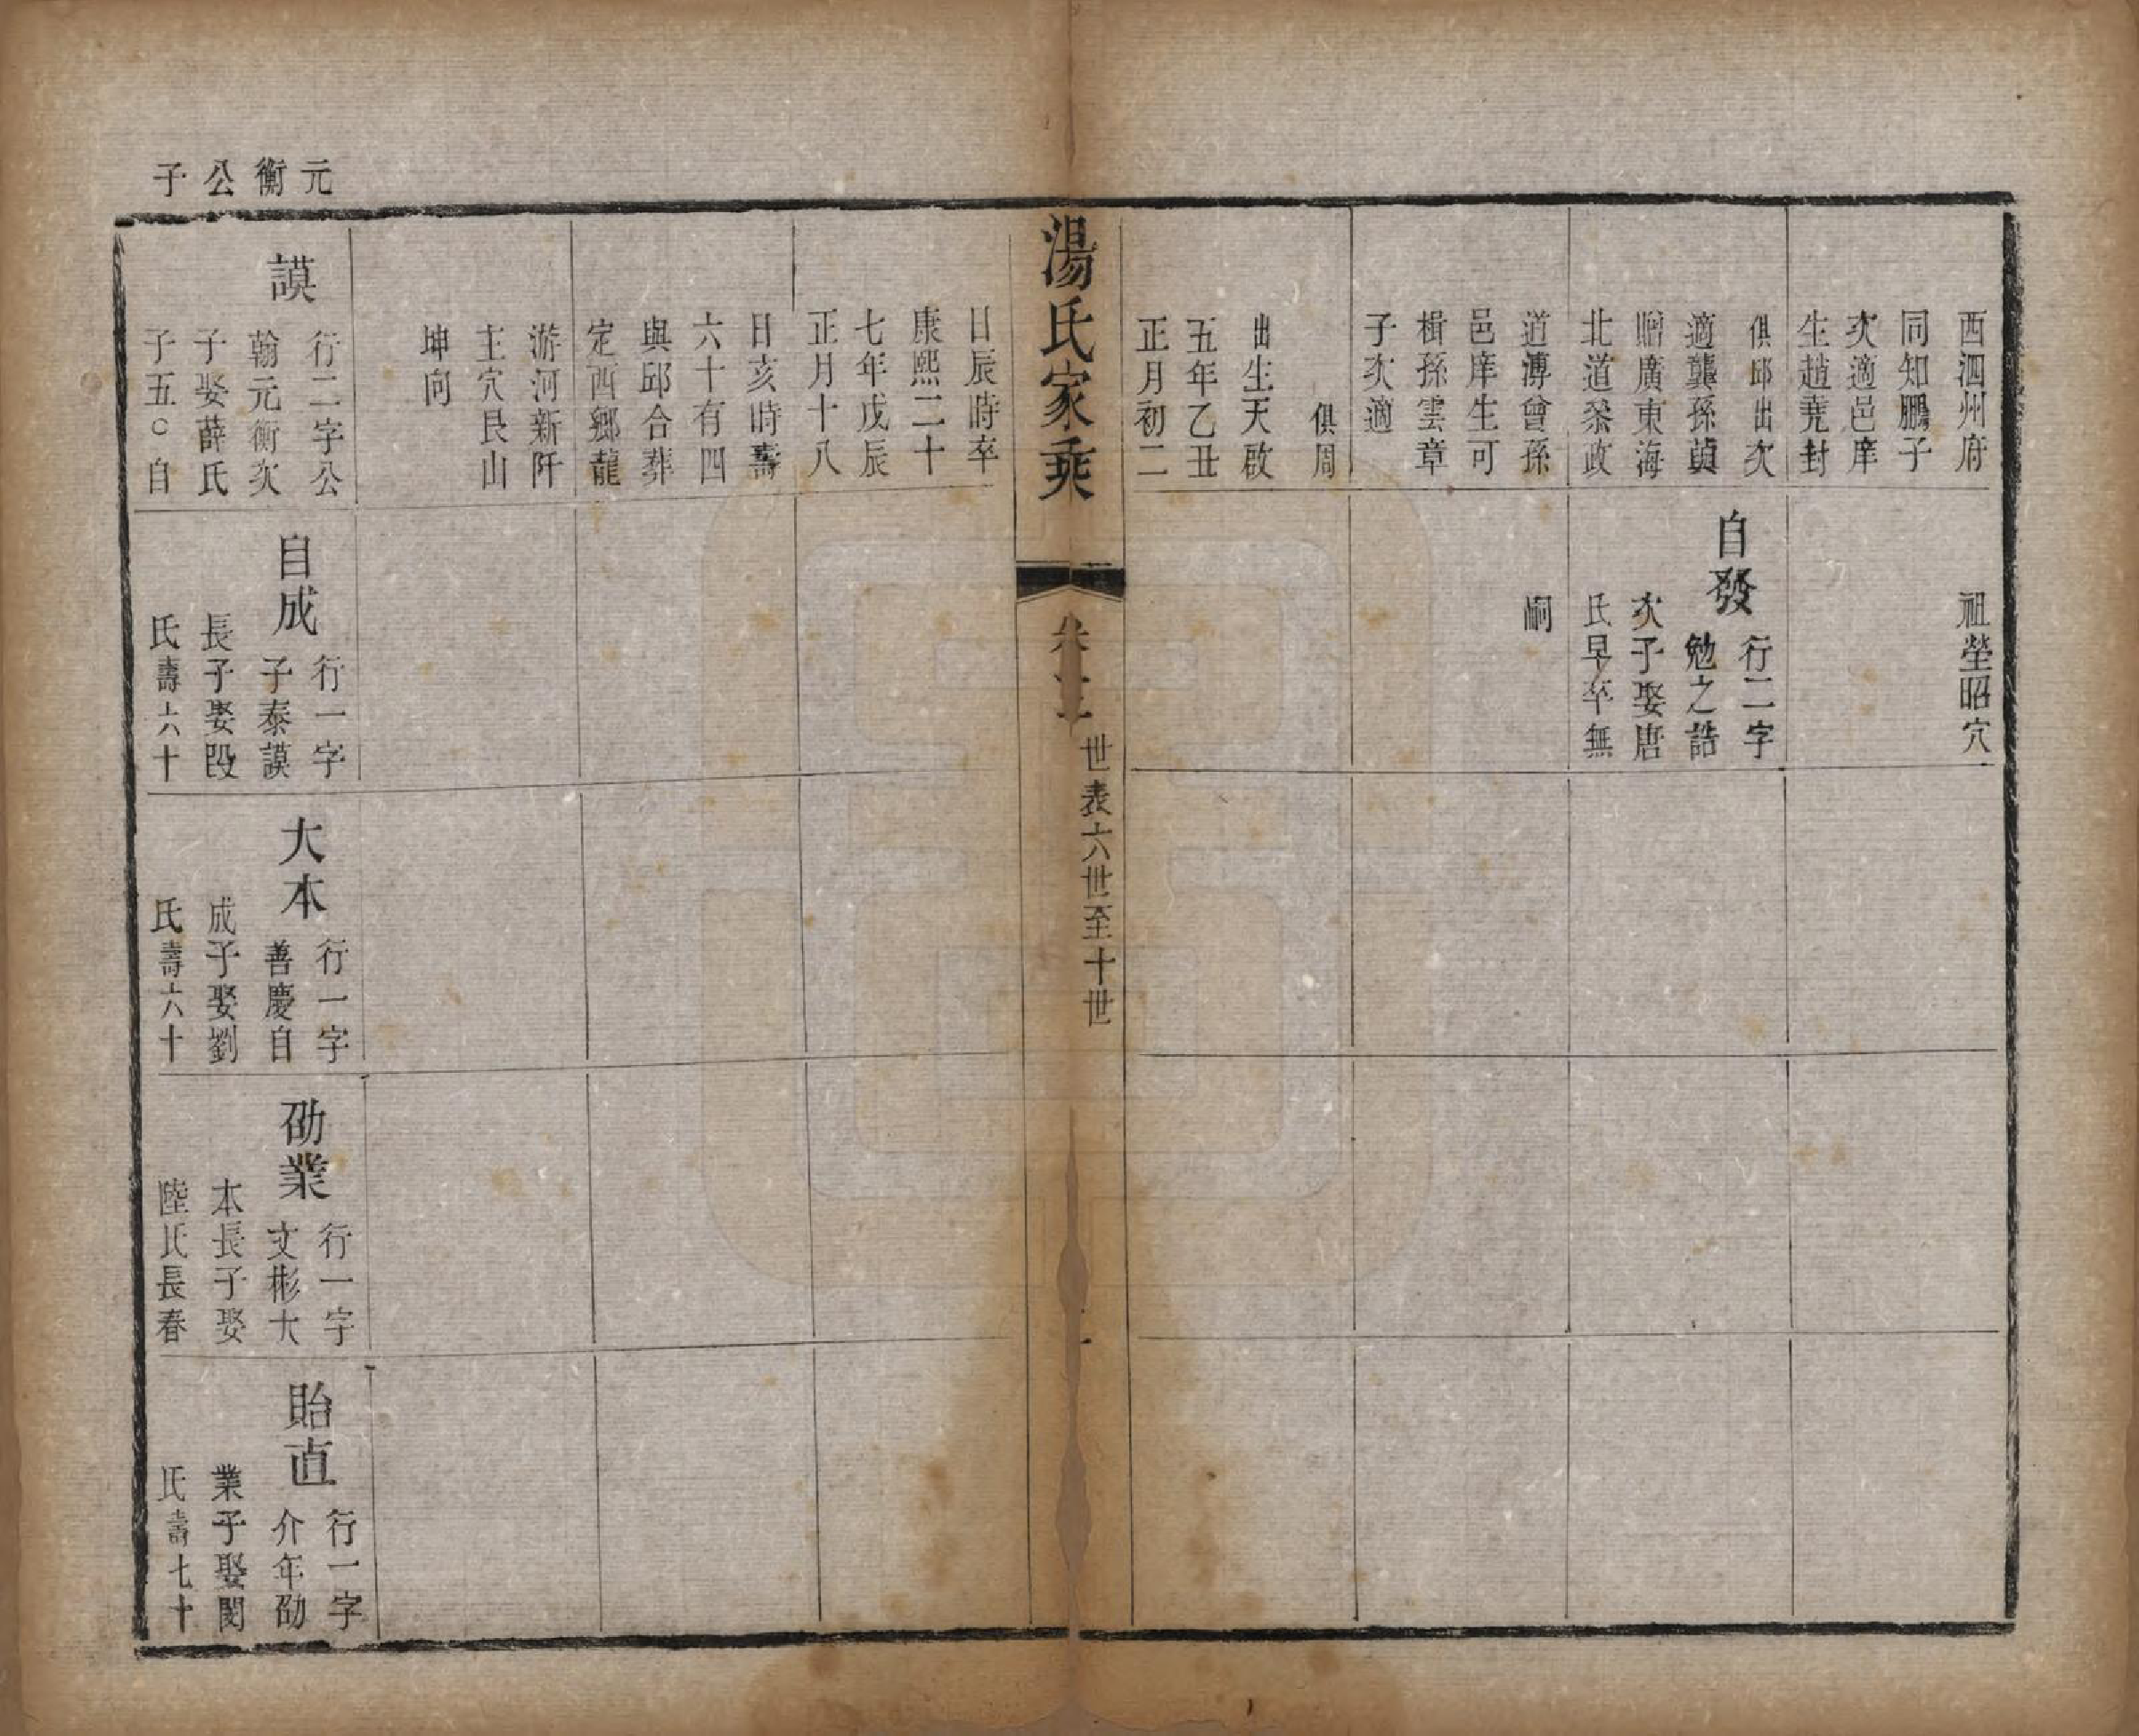 西泗州府
同知鵬子
次適邑庠
生趙堯封
俱邱出次
適龔孫
贈廣東海
北道叅政
道溥曾孫
邑庠生可
楫孫雲章
子次適
俱周
出生天啟
五年乙丑
正月初二
祖塋昭穴
自發
行二字
勉之誥
次子娶唐
氏早卒無
嗣
湯氏家乘
世表六世至十世
日辰時卒
康熙二十
七年戊辰
正月十八
日亥時壽
六十有四
與邱合葬
定西鄉龍
游河新阡
主穴艮山
坤向
元衡公子
謨
行二字公
翰元衡次
子娶薛氏
子五○自
自成
行一字
子泰謨
長子娶段
氏壽六十
大本
行一字
善慶自
成子娶劉
氏壽六十
劭業
行一字
文彬大
本長子娶
陸氏長春
貽直
行一字
介年劭
業子娶閔
氏壽七十